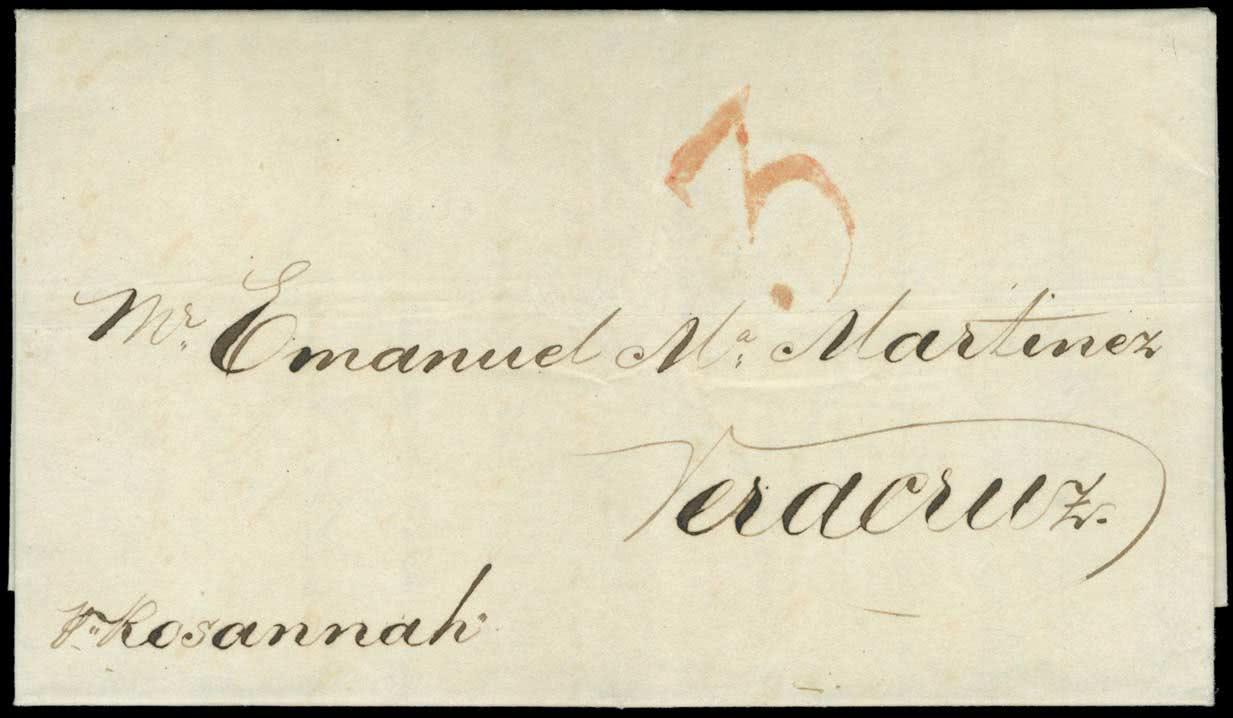 3
Mr. Emanuel Ma. Martinez
Veracruz.
pr. Rosannah